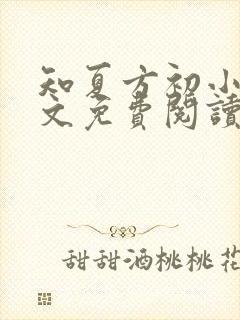 知夏方初小
文免费閱讀
甜甜酒桃桃花